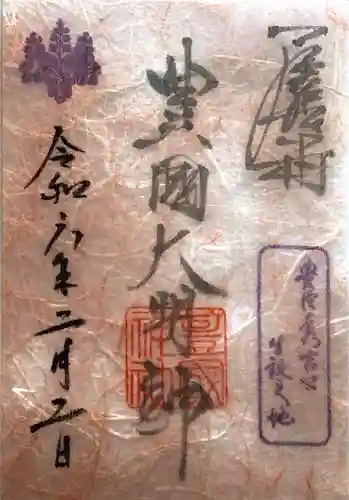 豊國大明神
豊臣秀吉公
生誕之地
令和六年二月二日